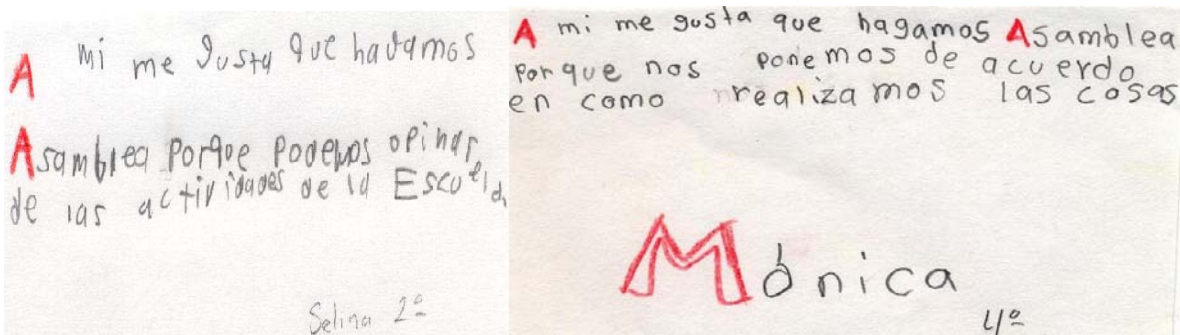 A mi me gusta que hagamos
Asamblea porque podemos opinar
de las actividades de la Escuela.
Selina 2º
A mi me gusta que hagamos Asamblea
porque nos ponemos de acuerdo
en como realizamos las cosas
Mónica
4º